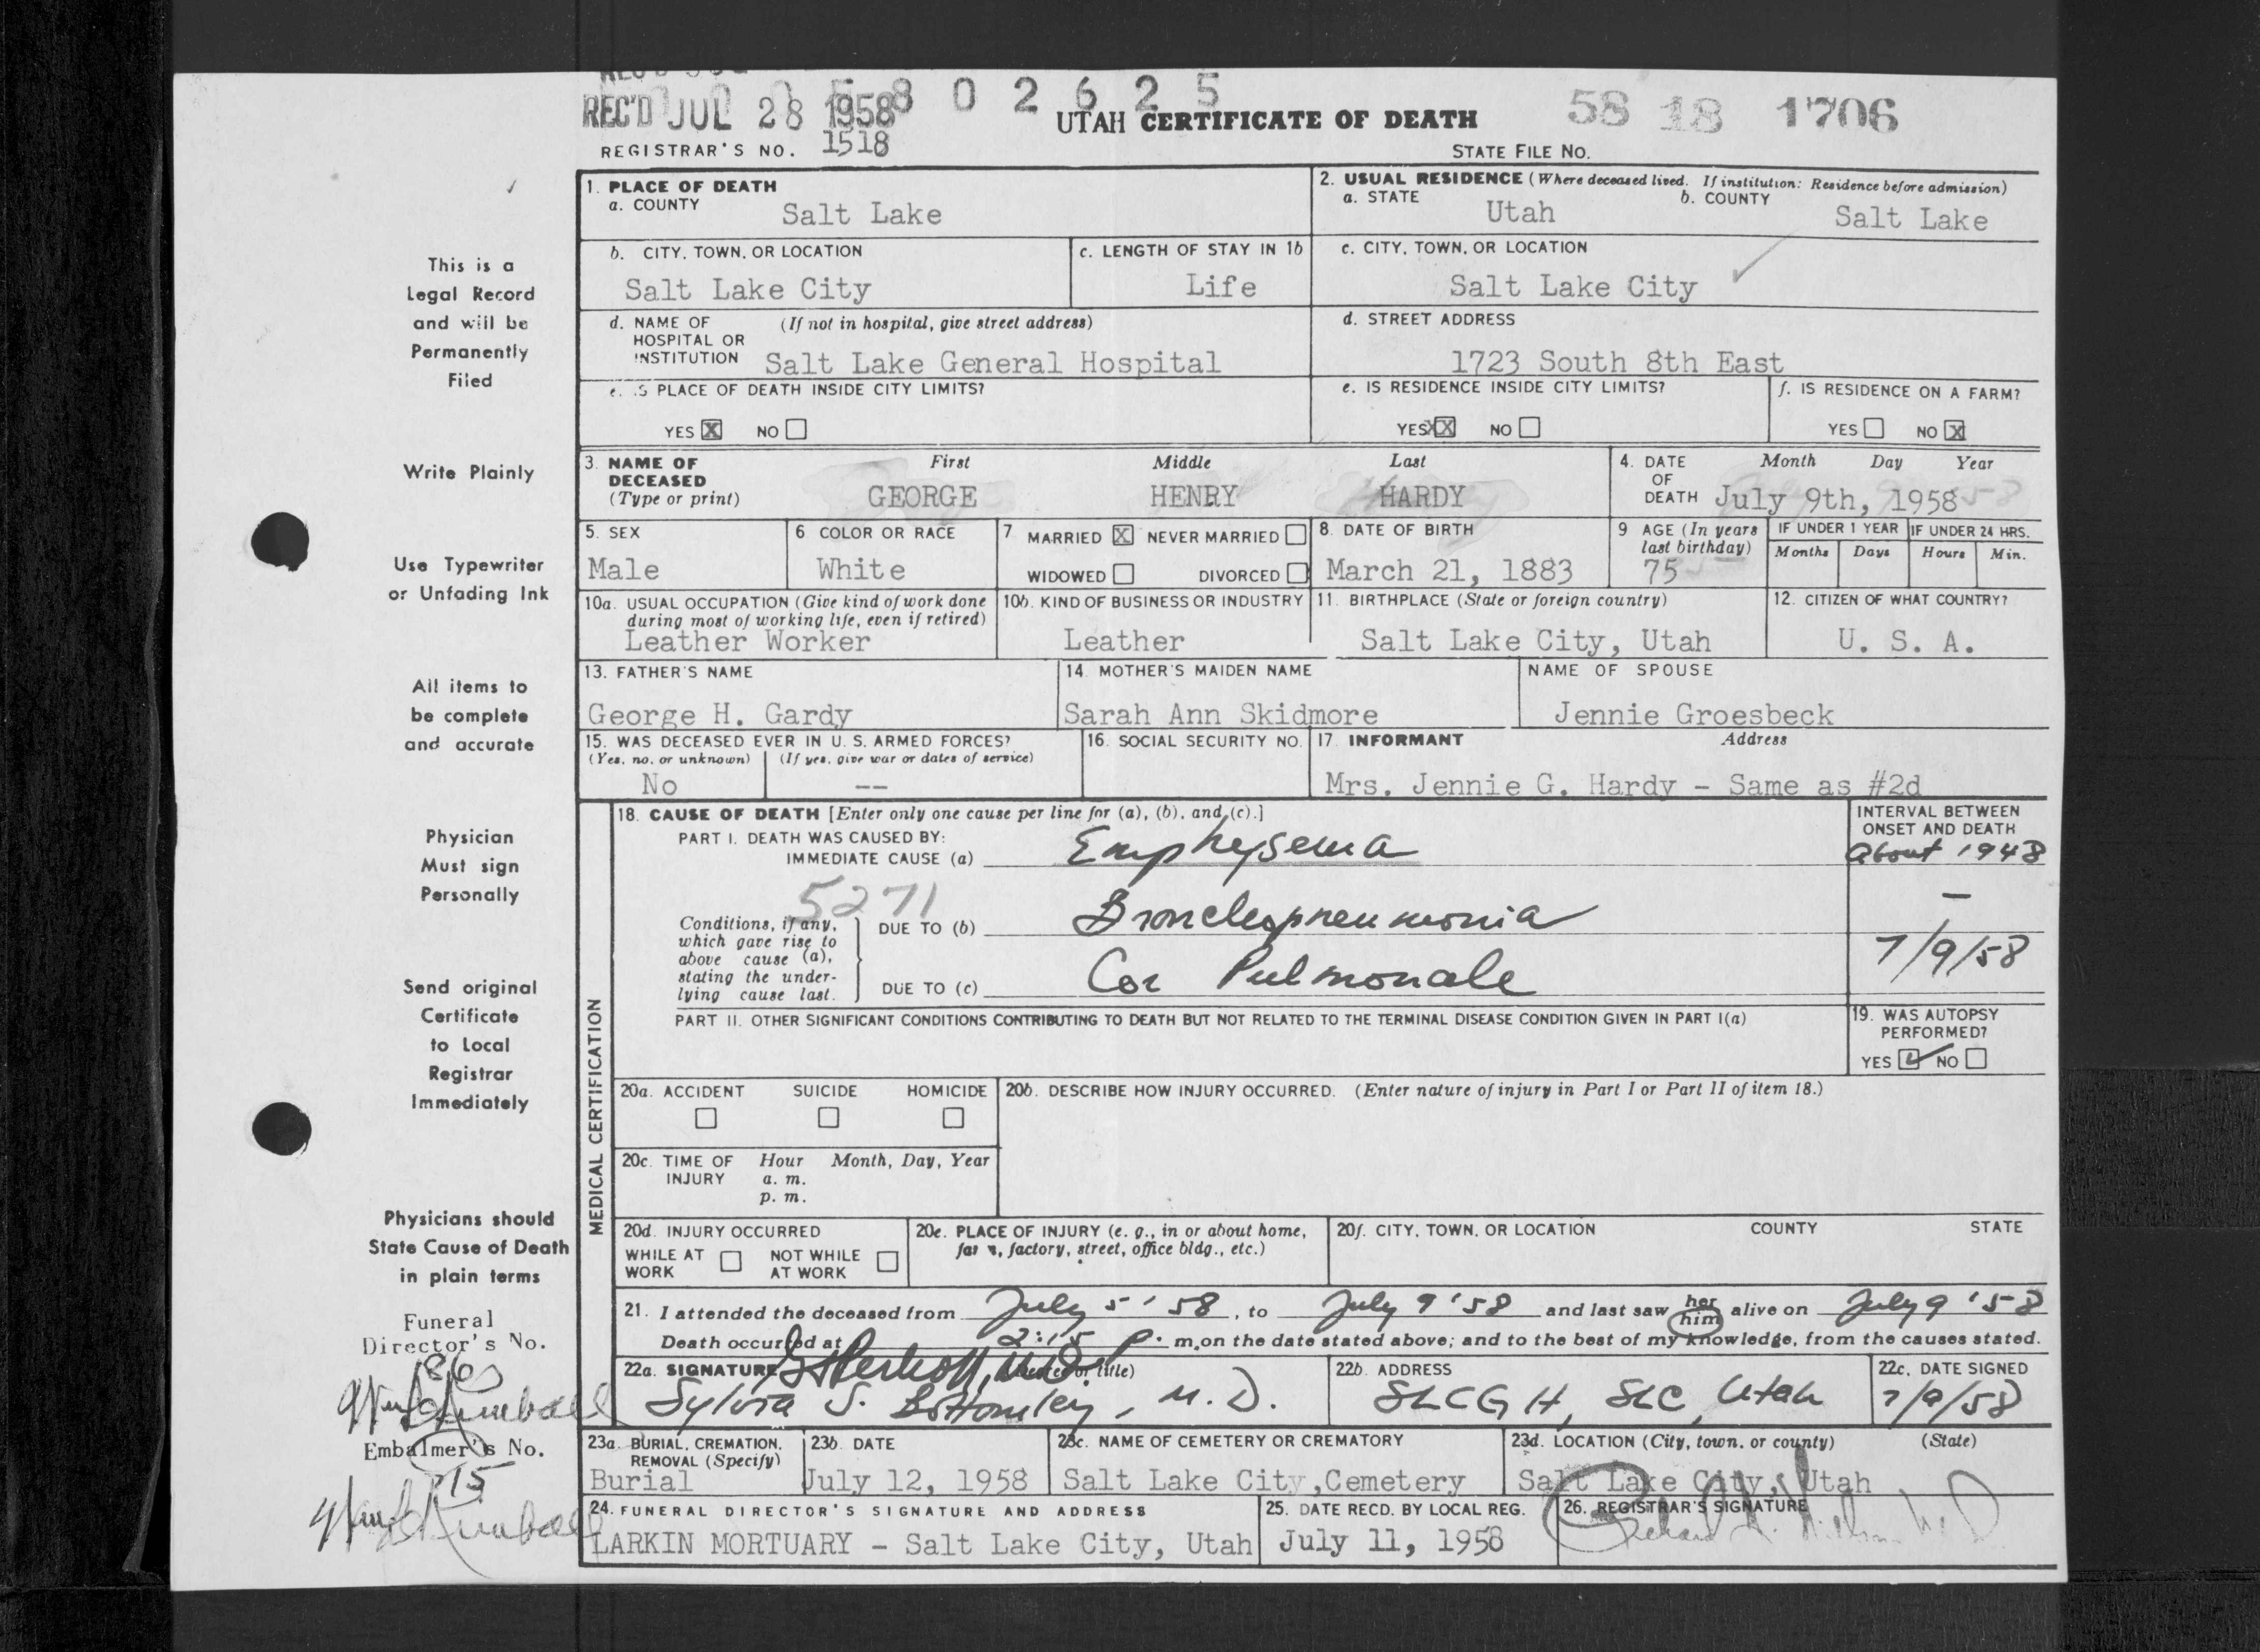 REC'D JUL 28 1958 8 0 2 6 2 5
UTAH CERTIFICATE OF DEATH
58 18 1706
REGISTRAR'S NO. 1518
STATE FILE NO.
This is a
Legal Record
and will be
Permanently
Filed
Write Plainly
Use Typewriter
or Unfading Ink
All items to
be complete
and accurate
Physician
Must sign
Personally
Send original
Certificate
to Local
Registrar
Immediately
Physicians should
State Cause of Death
in plain terms
Funeral
Director's No.
186
Embalmer's No.
1. PLACE OF DEATH
a. COUNTY
Salt Lake
2. USUAL RESIDENCE (Where deceased lived. If institution: Residence before admission)
a. STATE Utah b. COUNTY Salt Lake
b. CITY, TOWN, OR LOCATION
Salt Lake City
c. LENGTH OF STAY IN 1b
Life
c. CITY, TOWN, OR LOCATION
Salt Lake City
d. NAME OF (If not in hospital, give street address)
HOSPITAL OR
INSTITUTION Salt Lake General Hospital
d. STREET ADDRESS
1723 South 8th East
e. IS PLACE OF DEATH INSIDE CITY LIMITS?
YES X NO
e. IS RESIDENCE INSIDE CITY LIMITS?
YES XX NO
f. IS RESIDENCE ON A FARM?
YES NO X
3. NAME OF First Middle Last
DECEASED
(Type or print) GEORGE HENRY HARDY
4. DATE Month Day Year
OF
DEATH July 9th, 1958
5. SEX
Male
6 COLOR OR RACE
White
7 MARRIED X NEVER MARRIED
WIDOWED DIVORCED
8. DATE OF BIRTH
March 21, 1883
9 AGE (In years
last birthday)
75
IF UNDER 1 YEAR
Months Days
IF UNDER 24 HRS.
Hours Min.
10a. USUAL OCCUPATION (Give kind of work done
during most of working life, even if retired)
Leather Worker
10b. KIND OF BUSINESS OR INDUSTRY
Leather
11. BIRTHPLACE (State or foreign country)
Salt Lake City, Utah
12. CITIZEN OF WHAT COUNTRY?
U. S. A.
13. FATHER'S NAME
George H. Gardy
14. MOTHER'S MAIDEN NAME
Sarah Ann Skidmore
NAME OF SPOUSE
Jennie Groesbeck
15. WAS DECEASED EVER IN U. S. ARMED FORCES?
(Yes, no, or unknown) (If yes, give war or dates of service)
No --
16. SOCIAL SECURITY NO.
17. INFORMANT Address
Mrs. Jennie G. Hardy - Same as #2d
MEDICAL CERTIFICATION
18. CAUSE OF DEATH [Enter only one cause per line for (a), (b), and (c).]
PART I. DEATH WAS CAUSED BY:
IMMEDIATE CAUSE (a) Emphysema
INTERVAL BETWEEN
ONSET AND DEATH
About 1948
5271
Conditions, if any,
which gave rise to
above cause (a),
stating the under-
lying cause last.
DUE TO (b) Bronchopneumonia –
DUE TO (c) Cor Pulmonale 7/9/58
PART II. OTHER SIGNIFICANT CONDITIONS CONTRIBUTING TO DEATH BUT NOT RELATED TO THE TERMINAL DISEASE CONDITION GIVEN IN PART I(a)
19. WAS AUTOPSY
PERFORMED?
YES ✓ NO
20a. ACCIDENT SUICIDE HOMICIDE
20b. DESCRIBE HOW INJURY OCCURRED. (Enter nature of injury in Part I or Part II of item 18.)
20c. TIME OF Hour Month, Day, Year
INJURY a. m.
p. m.
20d. INJURY OCCURRED
WHILE AT NOT WHILE
WORK AT WORK
20e. PLACE OF INJURY (e. g., in or about home,
farm, factory, street, office bldg., etc.)
20f. CITY, TOWN, OR LOCATION COUNTY STATE
21. I attended the deceased from July 5 '58, to July 9 '58 and last saw her him alive on July 9 '58
Death occurred at 2:15 p. m. on the date stated above; and to the best of my knowledge, from the causes stated.
22a. SIGNATURE (Degree or title)
Sylvia S. Bottomley, M. D.
22b. ADDRESS
SLCGH, SLC, Utah
22c. DATE SIGNED
7/9/58
23a. BURIAL, CREMATION,
REMOVAL (Specify)
Burial
23b. DATE
July 12, 1958
23c. NAME OF CEMETERY OR CREMATORY
Salt Lake City, Cemetery
23d. LOCATION (City, town, or county) (State)
Salt Lake City, Utah
24. FUNERAL DIRECTOR'S SIGNATURE AND ADDRESS
LARKIN MORTUARY - Salt Lake City, Utah
25. DATE RECD. BY LOCAL REG.
July 11, 1958
26. REGISTRAR'S SIGNATURE